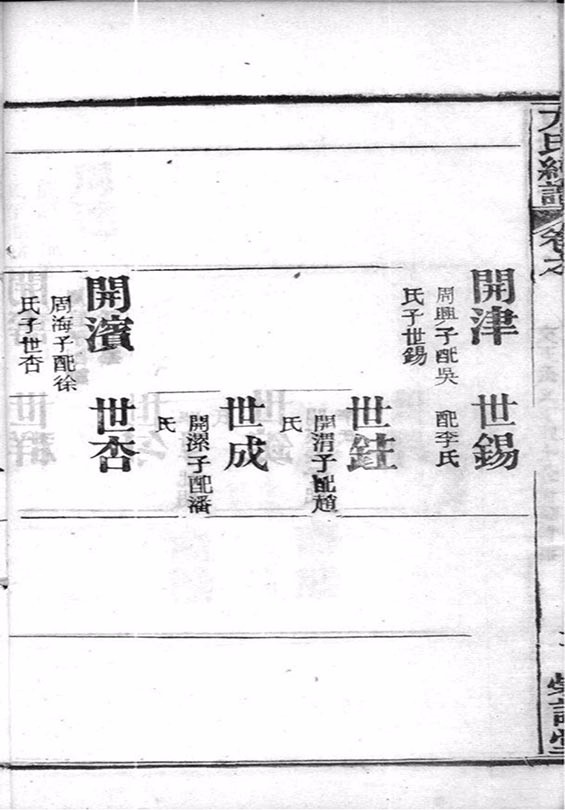 卷之
開津
周興子配吳
氏子世錫
世錫
配李氏
世
開渭子配趙
氏
世成
開子配潘
氏
開濱
周海子配徐
氏子世杏
世杏